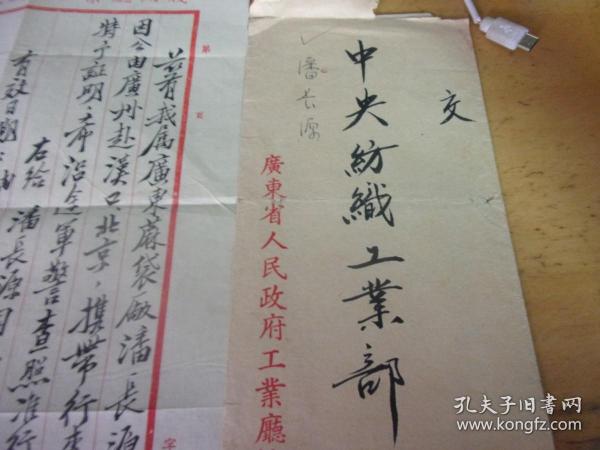 交
中央紡織工業部
潘長源
廣東省人民政府工業廳
第
頁
茲有我属廣東麻袋廠潘長源
因公由廣州赴漢口北京，携带行李
特予証明，希沿途軍警查照准行
右給潘長源同
有效日期
字
孔夫子旧书网
www.kongfz.com